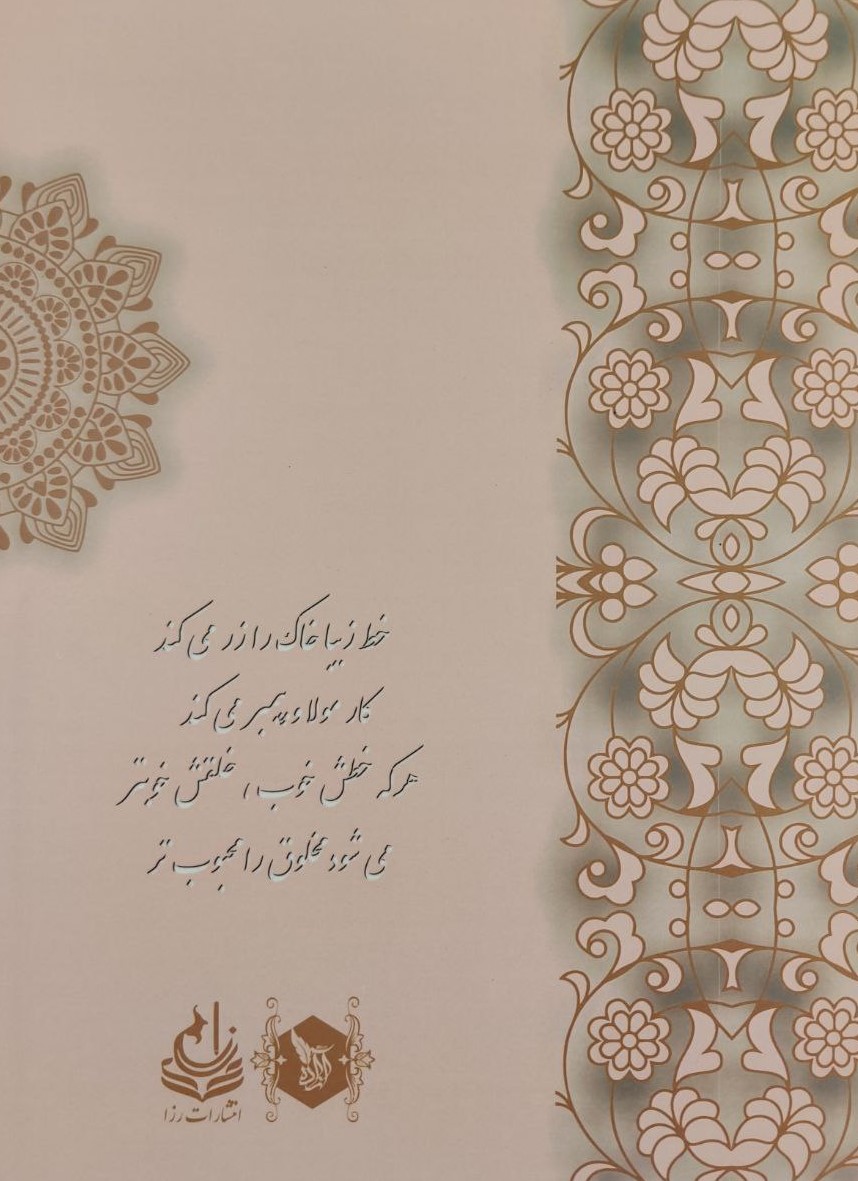 خط زیبا خاک را زر می کند
کار مولا و پیمبر می کند
هر که خطش خوب، خلقش خوبتر
می شود مخلوق را محبوب تر
انتشارات رزا